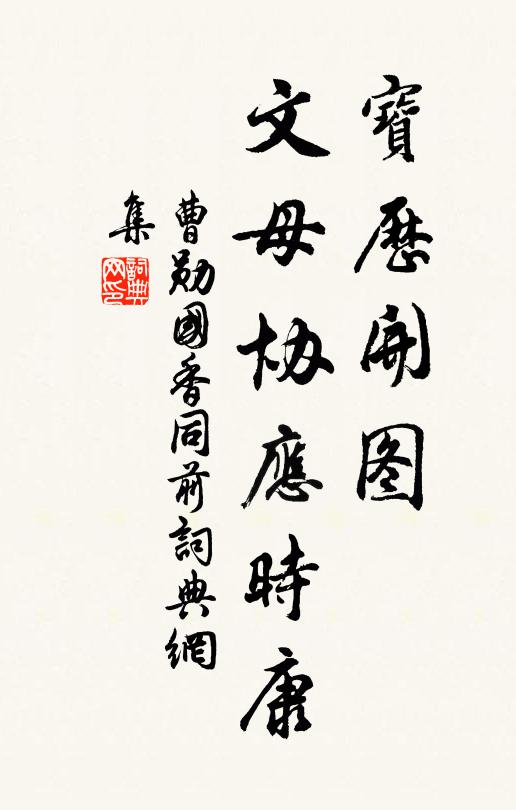 寶歷開图
文母協應時康
曹勛國香同前詞典網
集
詞典
网印